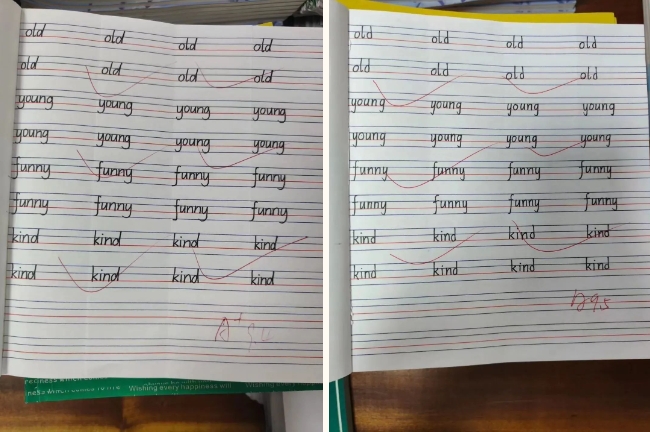 old old old old
old old old old
young young young young
young young young young
funny funny funny funny
funny funny funny funny
kind kind kind kind
kind kind kind kind
A+
Wishing every happiness will
old old old old
old old old old
young young young young
young young young young
funny funny funny funny
funny funny funny funny
kind kind kind kind
kind kind kind kind
95